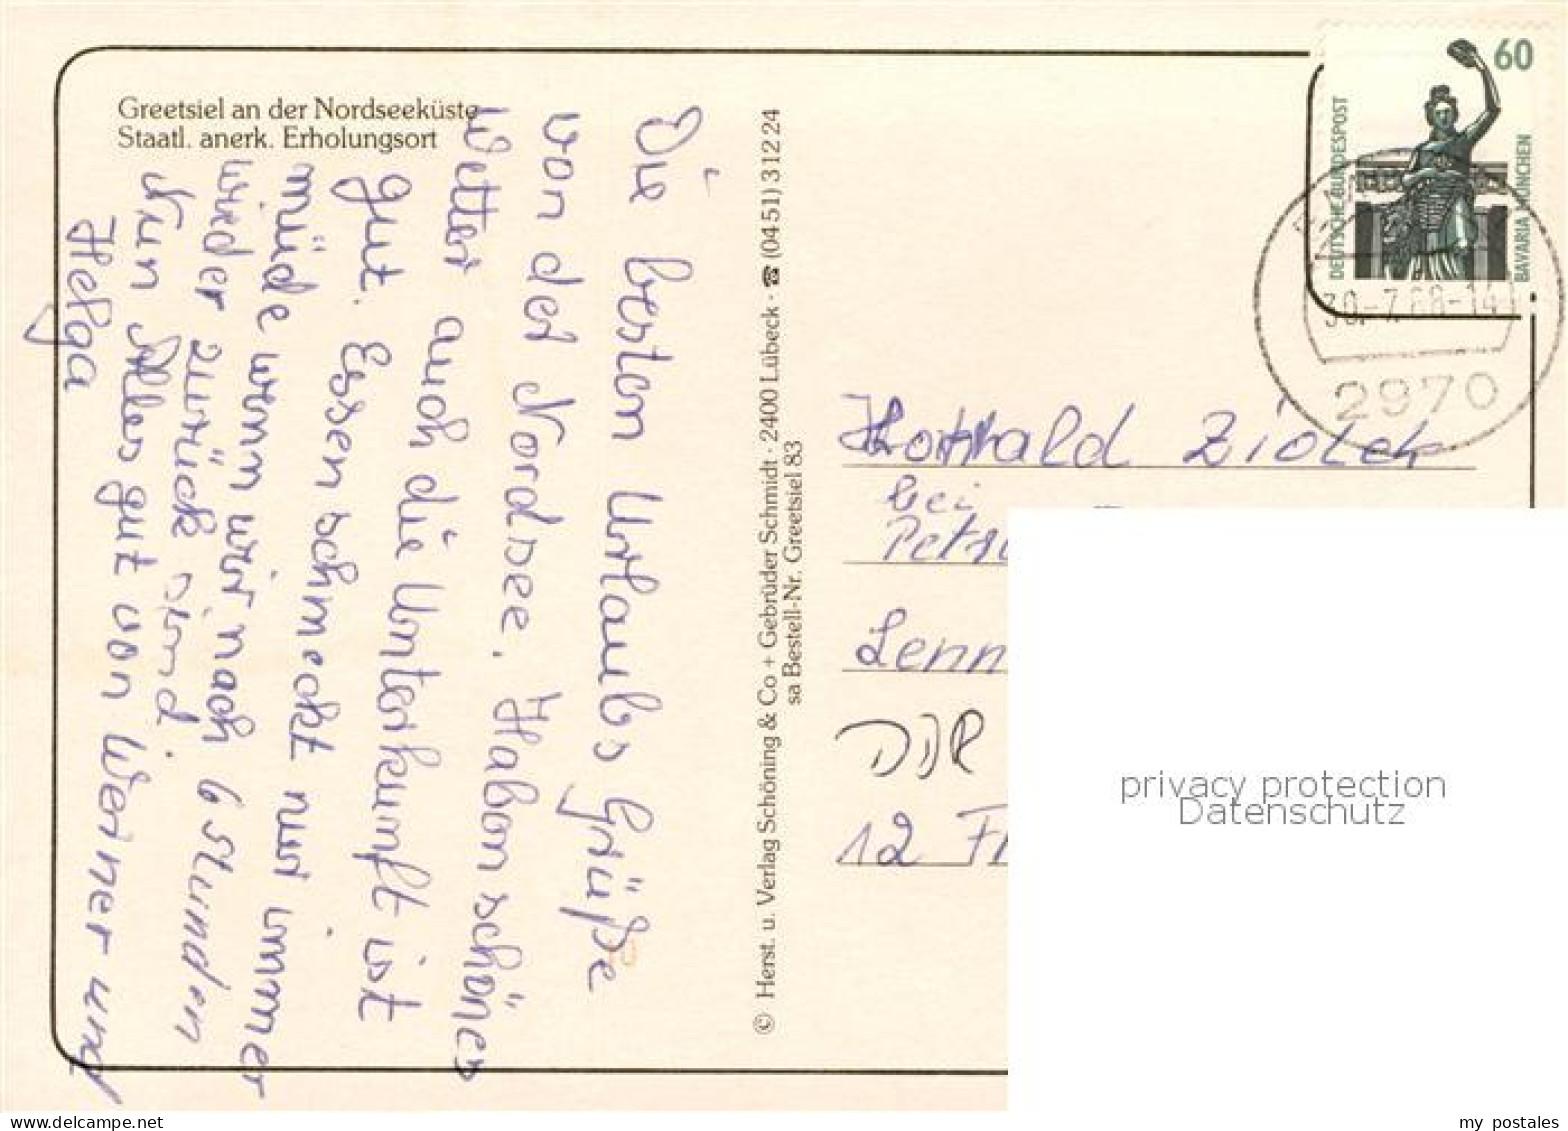 Greetsiel an der Nordseeküste
Staatl. anerk. Erholungsort
Die besten Urlaubs Grüße
von der Nordsee. Haben schönes
Wetter auch die Unterkunft ist
gut. Essen schmeckt nur immer
müde wenn wir nach 6 Stunden
wieder zurück sind.
Nun Alles gut von Werner und
Helga
© Herst. u. Verlag Schöning & Co + Gebrüder Schmidt · 2400 Lübeck · ☎ (0451) 31224
sa Bestell-Nr. Greetsiel 83
60
DEUTSCHE BUNDESPOST
BAVARIA MÜNCHEN
30.-7.88-14
2970
bei
Lenn
DDR
12
privacy protection
Datenschutz
www.delcampe.net
my_postales